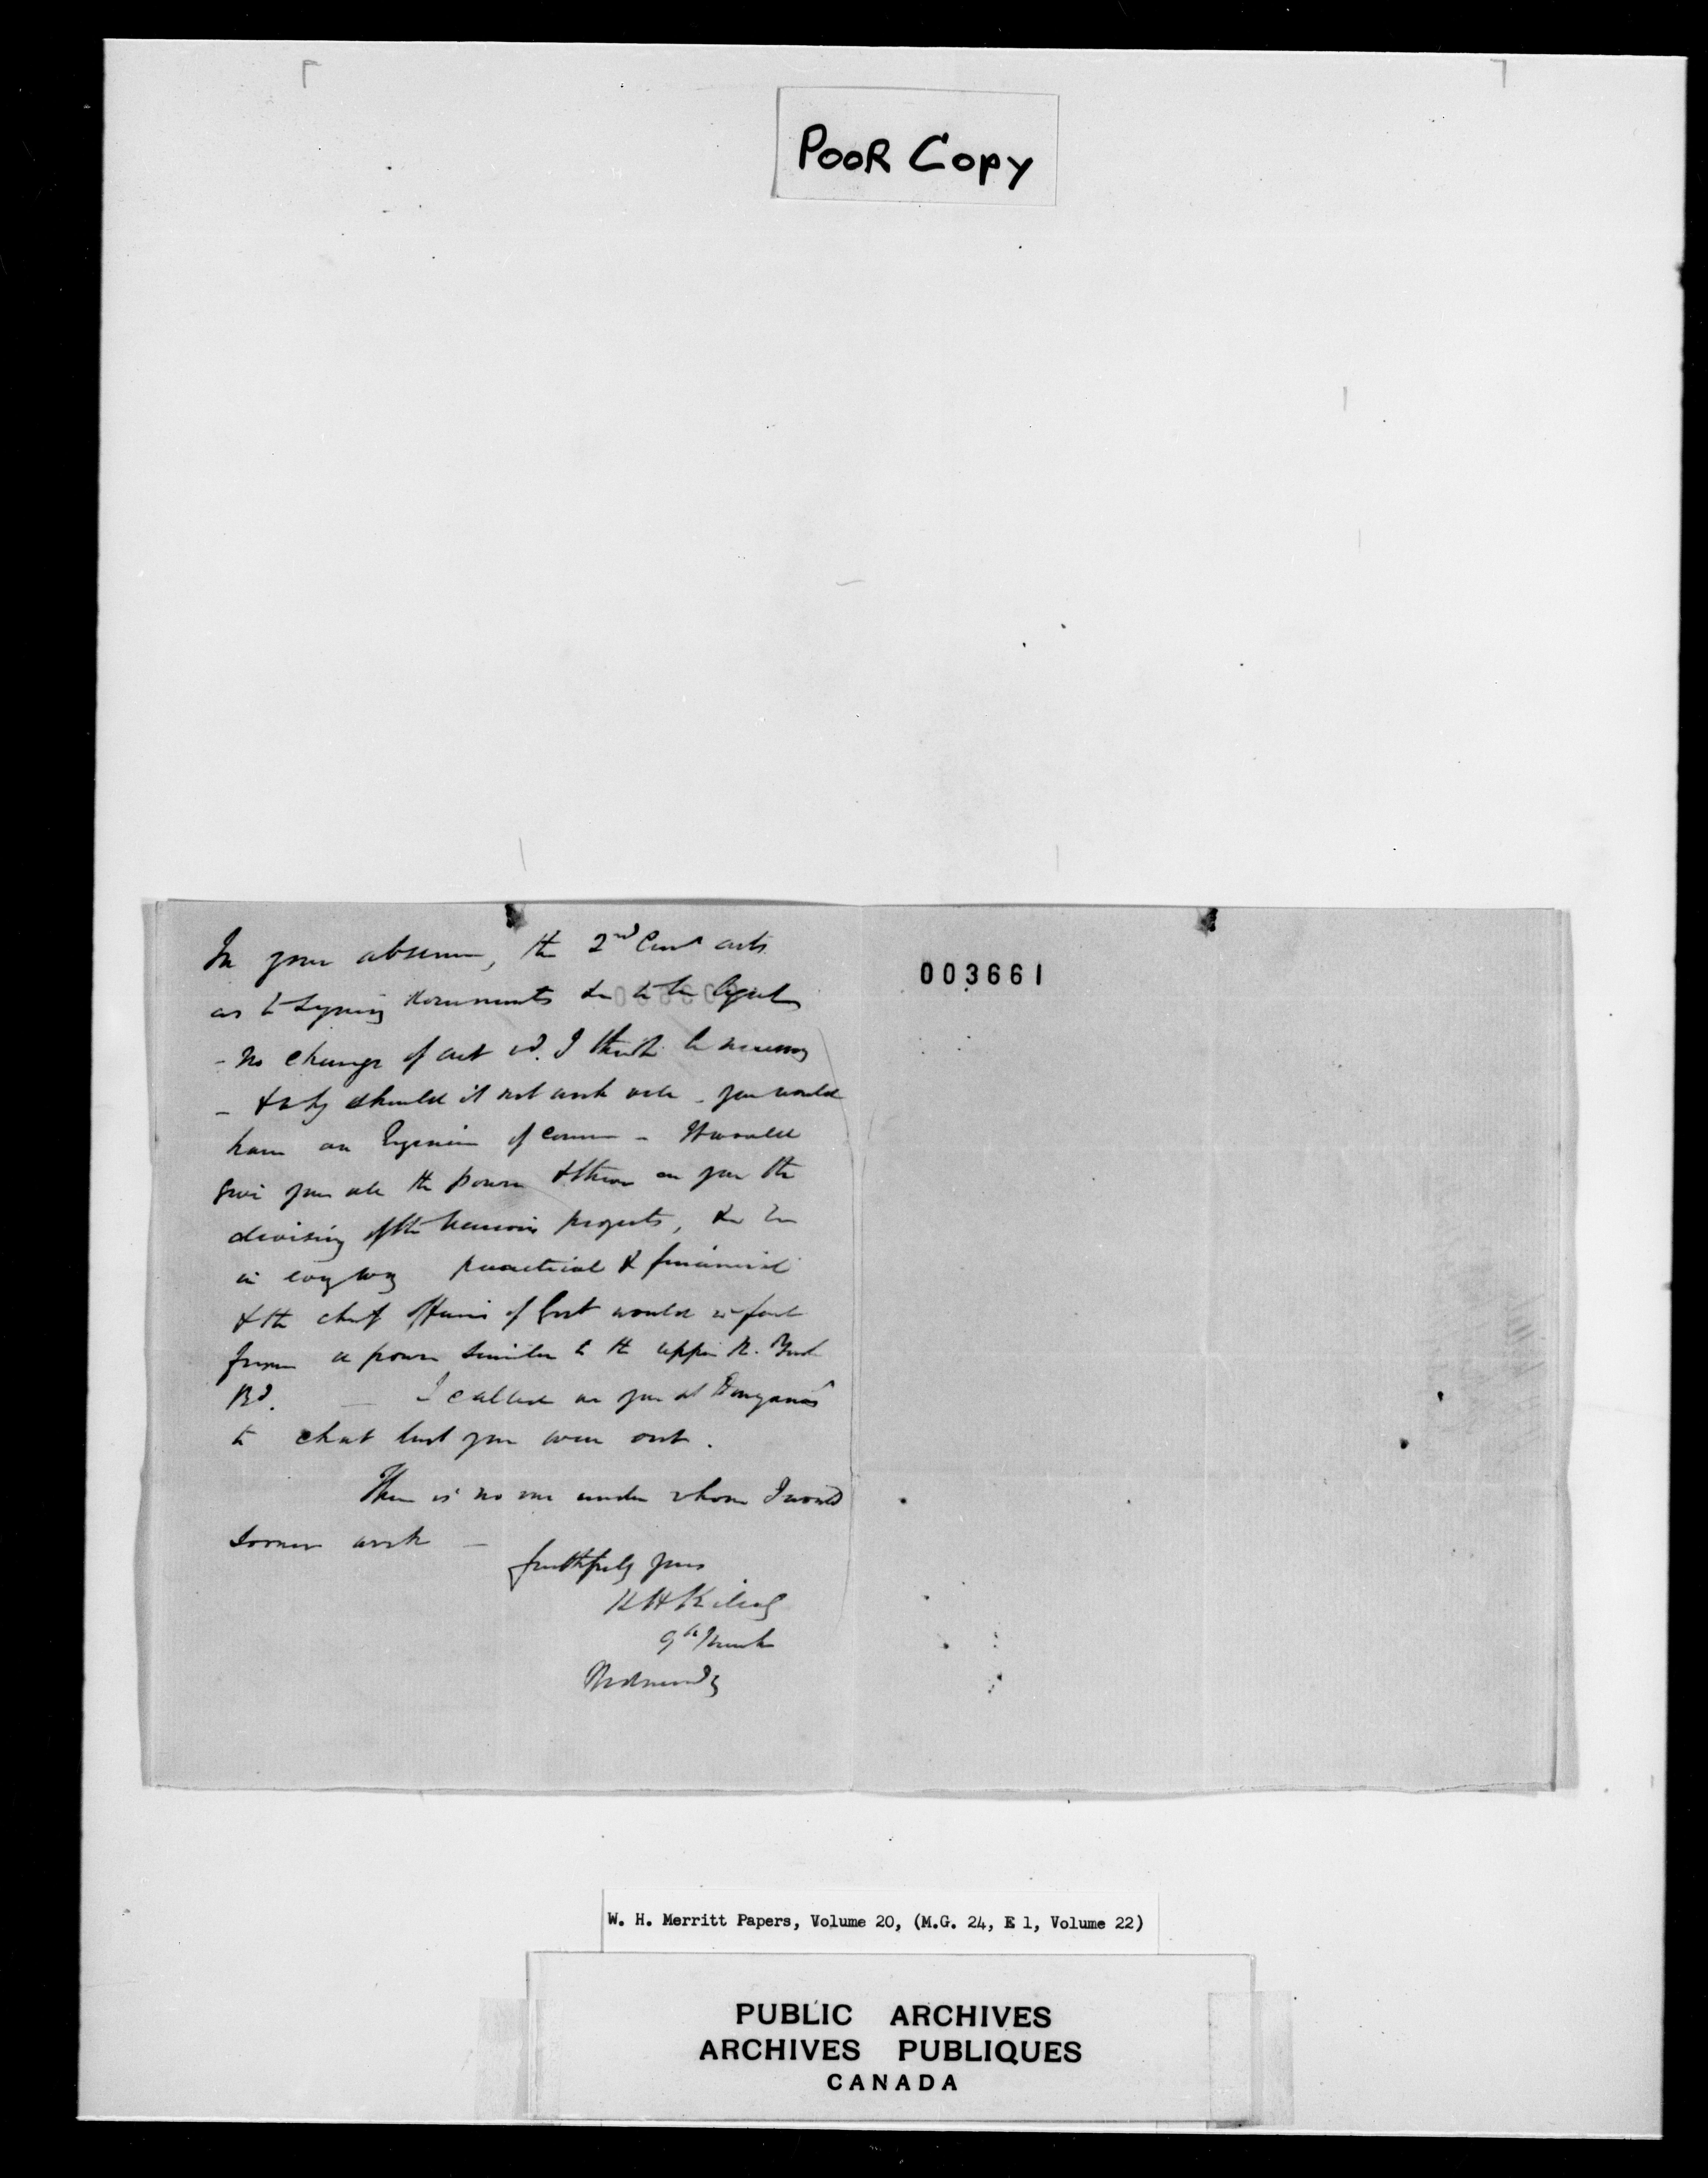 POOR COPY
003661
In your absence, the 2nd acts
as to signing documents &c to be legal
- No change of act wd. I think be necessary
- & why should it not work well - you would
have an Engineer of course - It would
give you all the power & throw on you the
devising of the various projects, &c &c
in every way practical & financial
& the chief officers of Govt would in fact
from a power similar to the upper
Bd. I called on you at
to chat but you were out.
There is no one under whom I would
sooner work -
faithfully yours
9th March
Wednesday
W. H. Merritt Papers, Volume 20, (M.G. 24, E 1, Volume 22)
PUBLIC ARCHIVES
ARCHIVES PUBLIQUES
CANADA